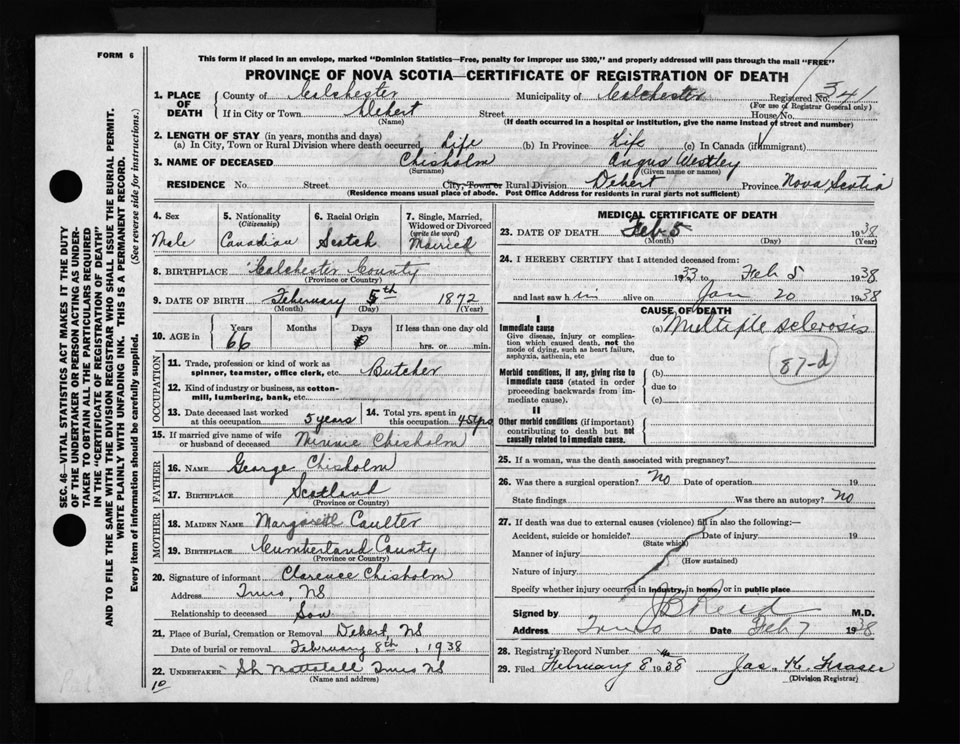 FORM 6
This form if placed in an envelope, marked "Dominion Statistics—Free, penalty for improper use $300," and properly addressed will pass through the mail "FREE"
PROVINCE OF NOVA SCOTIA—CERTIFICATE OF REGISTRATION OF DEATH
SEC. 46—VITAL STATISTICS ACT MAKES IT THE DUTY
OF THE UNDERTAKER OR PERSON ACTING AS UNDER-
TAKER TO OBTAIN ALL THE PARTICULARS REQUIRED
IN THE "CERTIFICATE OF REGISTRATION OF DEATH"
AND TO FILE THE SAME WITH THE DIVISION REGISTRAR WHO SHALL ISSUE THE BURIAL PERMIT.
WRITE PLAINLY WITH UNFADING INK. THIS IS A PERMANENT RECORD.
Every item of information should be carefully supplied. (See reverse side for instructions.)
1. PLACE OF DEATH County of Colchester Municipality of Colchester Registered No. 341
(For use of Registrar General only)
If in City or Town Debert Street House No.
(Name) (If death occurred in a hospital or institution, give the name instead of street and number)
2. LENGTH OF STAY (in years, months and days)
(a) In City, Town or Rural Division where death occurred Life (b) In Province Life (c) In Canada (if immigrant)
3. NAME OF DECEASED Chisholm Angus Westley
(Surname) (Given name or names)
RESIDENCE No. Street City, Town or Rural Division Debert Province Nova Scotia
(Residence means usual place of abode. Post Office Address for residents in rural parts not sufficient)
4. Sex Male
5. Nationality (Citizenship) Canadian
6. Racial Origin Scotch
7. Single, Married, Widowed or Divorced (write the word) Married
8. BIRTHPLACE Colchester County
(Province or Country)
9. DATE OF BIRTH February 5th 1872
(Month) (Day) (Year)
10. AGE in Years 66 Months Days 0 If less than one day old
hrs. or min.
OCCUPATION
11. Trade, profession or kind of work as spinner, teamster, office clerk, etc. Butcher
12. Kind of industry or business, as cotton-mill, lumbering, bank, etc.
13. Date deceased last worked at this occupation 5 years
14. Total yrs. spent in this occupation 45 yrs
15. If married give name of wife or husband of deceased Minnie Chisholm
FATHER
16. NAME George Chisholm
17. BIRTHPLACE Scotland
(Province or Country)
MOTHER
18. MAIDEN NAME Margaret Coulter
19. BIRTHPLACE Cumberland County
(Province or Country)
20. Signature of informant Clarence Chisholm
Address Truro, NS
Relationship to deceased Son
21. Place of Burial, Cremation or Removal Debert, NS
Date of burial or removal February 8th, 1938
22. UNDERTAKER Truro NS
(Name and address)
10
MEDICAL CERTIFICATE OF DEATH
23. DATE OF DEATH Feb 5 1938
(Month) (Day) (Year)
24. I HEREBY CERTIFY that I attended deceased from:
1933 to Feb 5 1938
and last saw him alive on Jan 20 1938
CAUSE OF DEATH
I
Immediate cause (a) Multiple sclerosis
Give disease, injury or complication which caused death, not the mode of dying, such as heart failure, asphyxia, asthenia, etc
due to
87-d
Morbid conditions, if any, giving rise to immediate cause (stated in order proceeding backwards from immediate cause).
(b)
due to
(c)
II
Other morbid conditions (if important) contributing to death but not causally related to immediate cause.
25. If a woman, was the death associated with pregnancy?
26. Was there a surgical operation? No Date of operation 19
State findings Was there an autopsy? No
27. If death was due to external causes (violence) fill in also the following:—
Accident, suicide or homicide? Date of injury 19
(State which)
Manner of injury
(How sustained)
Nature of injury
Specify whether injury occurred in industry, in home, or in public place
Signed by J B Reid M.D.
Address Truro Date Feb 7 1938
28. Registrar's Record Number
29. Filed February 8 1938 Jas. K. Fraser
(Division Registrar)